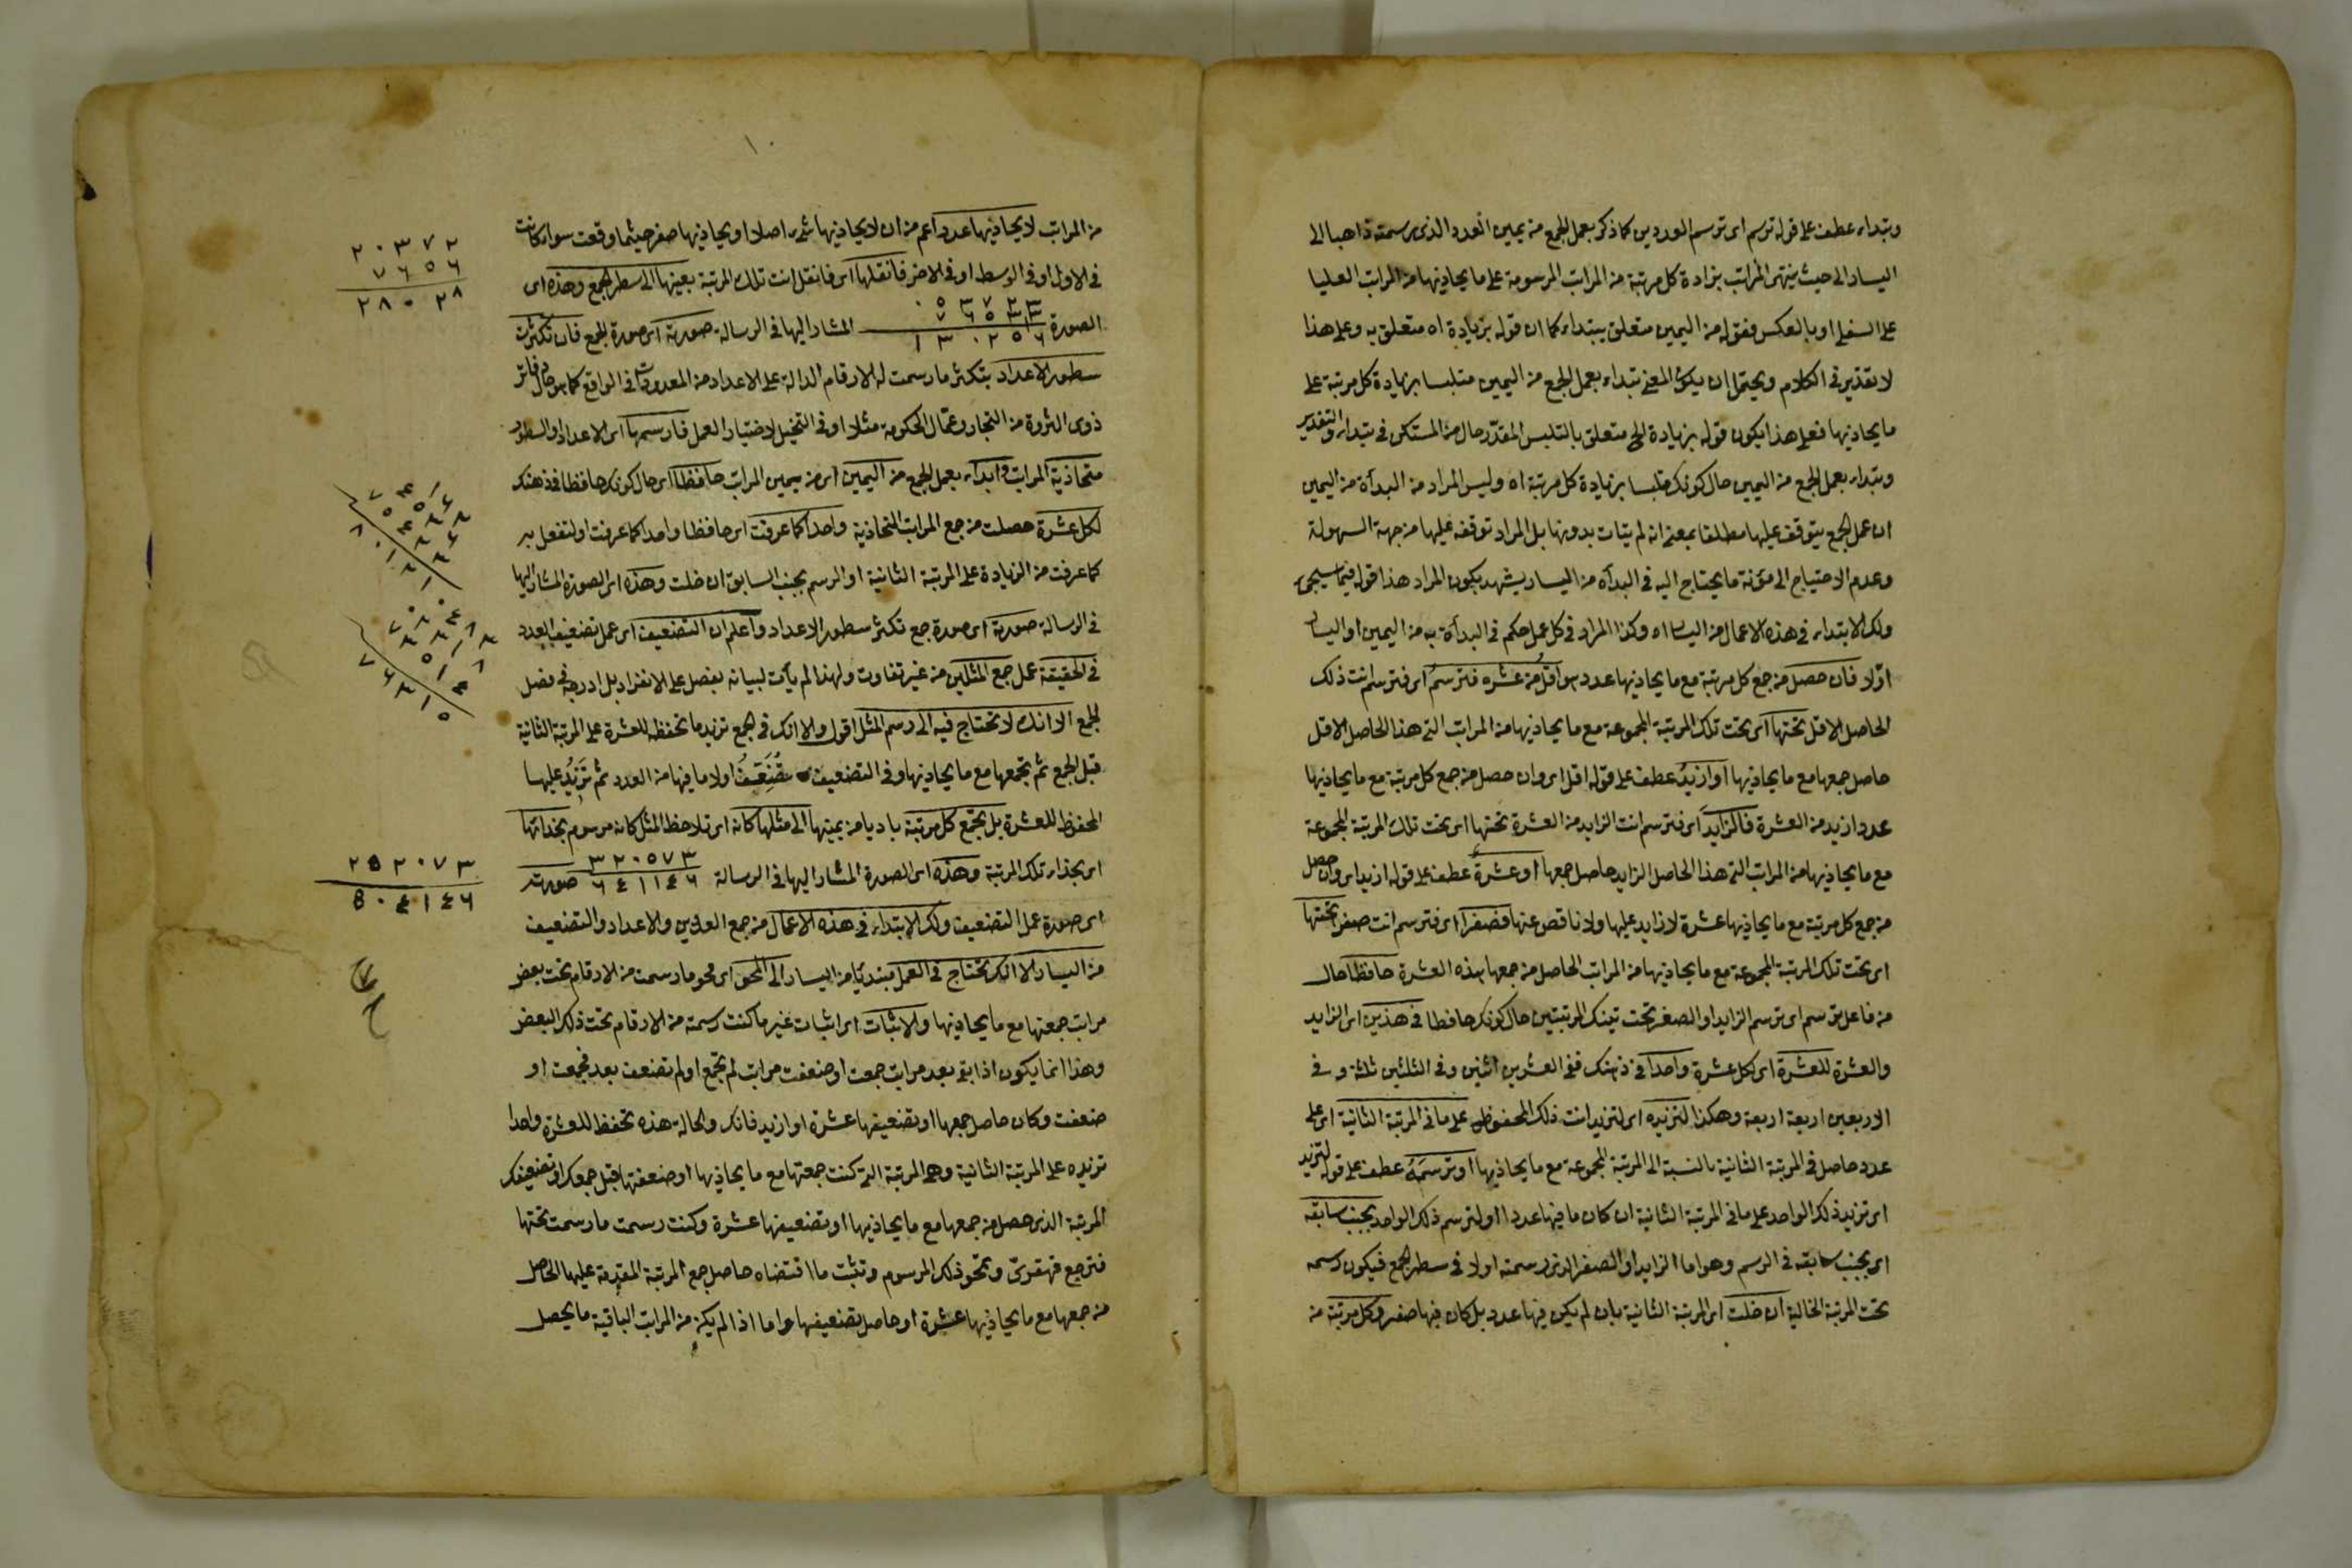 وتبتداء عطف على قوله ترسم اى ترسم العددين كما ذكر بعمل الجمع من يمين العدد الذى رسمته ذاهبا الى
اليسار الى حيث ينتهى المراتب بزيادة كل مرتبة من المراتب المرسومة على ما يحاذيها من المراتب العليا
على السفلى او بالعكس فقوله من اليمين متعلق بتبتداء كما ان قوله بزيادة اه متعلق به وعلى هذا
لا تقدير فى الكلام ويحتمل ان يكون المعنى تبتداء بعمل الجمع من اليمين متلبسا بزيادة كل مرتبة على
ما يحاذيها فعلى هذا يكون قوله بزيادة الخ متعلق بالتلبس المقدر حال من المستكن فى تبتداء والتقدير
وتبتداء بعمل الجمع من اليمين حال كونك متلبسا بزيادة كل مرتبة اه وليس المراد من البدأة من اليمين
ان عمل الجمع يتوقف عليها مطلقا بمعنى انه لم يتات بدونها بل المراد توقفه عليها من جهة السهولة
وعدم الاحتياج الى مؤنة ما يحتاج اليه فى البدأه من اليسار يشهد بكون المراد هذا قوله فيما سيجئ
ولك الابتداء فى هذه الاعمال من اليسار اه وكذا المراد فى كل عمل حكم فى البدأة به من اليمين او اليسار
اولا فان حصل من جمع كل مرتبة مع ما يحاذيها عدد هو اقل من عشره فترسم اى فترسم انت ذلك
الحاصل الاقل تحتها اى تحت تلك المرتبة المجموعة مع ما يحاذيها من المراتب التى هذا الحاصل الاقل
حاصل جمعها مع ما يحاذيها او ازيد عطف على قوله اقل اى وان حصل من جمع كل مرتبة مع ما يحاذيها
عدد ازيد من العشرة فالزايد اى فترسم انت الزايد من العشرة تحتها اى تحت تلك المرتبة المجموعة
مع ما يحاذيها من المراتب التى هذا الحاصل الزايد حاصل جمعها او عشرة عطف على قوله ازيد اى وان حصل
من جمع كل مرتبة مع ما يحاذيها عشرة لا زايد عليها ولا ناقص عنها فصفرا اى فترسم انت صفرا تحتها
اى تحت تلك المرتبة المجموعة مع ما يحاذيها من المراتب الحاصل من جمعها هذه العشرة حافظا حال
من فاعل ترسم اى ترسم الزايد او الصفر تحت تينك المرتبتين حال كونك حافظا فى هذين اى الزايد
والعشرة للعشرة اى لكل عشرة واحدا فى ذهنك ففى العشرين اثنين وفى الثلثين ثلثة و فى
الاربعين اربعة اربعة وهكذا لتزيده اى لتزيد انت ذلك المحفوظ على ما فى المرتبة الثانية اى على
عدد حاصل فى المرتبة الثانية بالنسبة الى المرتبة المجموعة مع ما يحاذيها او ترسمه عطف على قوله لتزيد
اى تزيد ذلك الواحد على ما فى المرتبة الثانية ان كان ما فيها عددا او لترسم ذلك الواحد بجنب سابقه
اى بجنب سابقه فى الرسم وهو اما الزايد او الصفر الذى رسمته اولا فى سطر الجمع فيكون رسمه
تحت المرتبة الخالية ان خلت اى المرتبة الثانية بان لم يكن فيها عدد بل كان فيها صفر وكل مرتبة من
١٠
من المراتب لا يحاذيها عدد اعم من ان لا يحاذيها شئ اصلا او يحاذيها صفر حيثما وقعت سواء كانت
فى الاول او فى الوسط او فى الاخر فانقلها اى فانقل انت تلك المرتبة بعينها الى سطر الجمع وهذه اى
الصورة المشار اليها فى الرسالة صورته اى صورة الجمع فان تكثرت
سطور الاعداد بتكثر ما رسمت له الارقام الدالة على الاعداد من المعدودات فى الواقع كما هو حال دفاتر
ذوى الثروة من التجار وعمال الحكومة مثلا او فى التخيل لاختيار العمل فارسمها اى الاعداد والسطور
متحاذية المراتب وابداء بعمل الجمع من اليمين اى من يمين المراتب حافظا اى حال كونك حافظا فى ذهنك
لكل عشرة حصلت من جمع المراتب المتحاذية واحدا كما عرفت اى حافظا واحدا كما عرفت او لتفعل به
كما عرفت من الزيادة على المرتبة الثانية او الرسم بجنب السابق ان خلت وهذه اى الصورة المشار اليها
فى الرسالة صورته اى صورة جمع تكثر سطور الاعداد واعلم ان التضعيف اى عمل تضعيف العدد
فى الحقيقة عمل جمع المثلين من غير تفاوت ولهذا لم يأت لبيانه بفصل على الانفراد بل ادرجه فى فصل
الجمع الا انك لا تحتاج فيه الى رسم المثل اقول والا انك فى الجمع تزيد ما تحفظه للعشرة على المرتبة الثانية
قبل الجمع ثم تجمعها مع ما يحاذيها وفى التضعيف تضعف اولا ما فيها من العدد ثم تزيد عليها
المحفوظ للعشرة بل تجمع كل مرتبة باديا من يمينها الى مثلها كانه اى تلاحظ المثل كانه مرسوم بحذائها
اى بحذاء تلك المرتبة وهذه اى الصورة المشار اليها فى الرسالة ٣٢٠٥٧٣ ٦٤١١٤٦ صورته
اى صورة عمل التضعيف ولك الابتداء فى هذه الاعمال من جمع العددين والاعداد والتضعيف
من اليسار الا انك تحتاج فى العمل مبتديًا من اليسار الى المحو اى محو ما رسمت من الارقام تحت بعض
مراتب جمعتها مع ما يحاذيها والاثبات اى اثبات غير ما كنت رسمته من الارقام تحت ذلك البعض
وهذا انما يكون اذا بقى بعد مراتب جمعت او ضعفت مراتب لم تجمع او لم تضعف بعد فجمعت او
ضعفت وكان حاصل جمعها او تضعيفها عشرة او ازيد فانك والحالة هذه تحفظ للعشرة واحدا
تزيده على المرتبة الثانية وهى المرتبة التى كنت جمعتها مع ما يحاذيها او ضعفتها قبل جمعك او تضعيفك
المرتبة الذى حصل من جمعها مع ما يحاذيها او تضعيفها عشرة وكنت رسمت ما رسمت تحتها
فترجع قهقرى وتمحو ذلك المرسوم وتثبت ما اقتضاه حاصل جمع المرتبة المقدمة عليها الحاصل
من جمعها مع ما يحاذيها عشرة او حاصل تضعيفها واما اذا لم يكن من المراتب الباقية ما يحصل
٢٠٣٧٢
٧٦٥٦
٢٨٠٢٨
٢٥٢٠٧٣
٥٠٤١٤٦